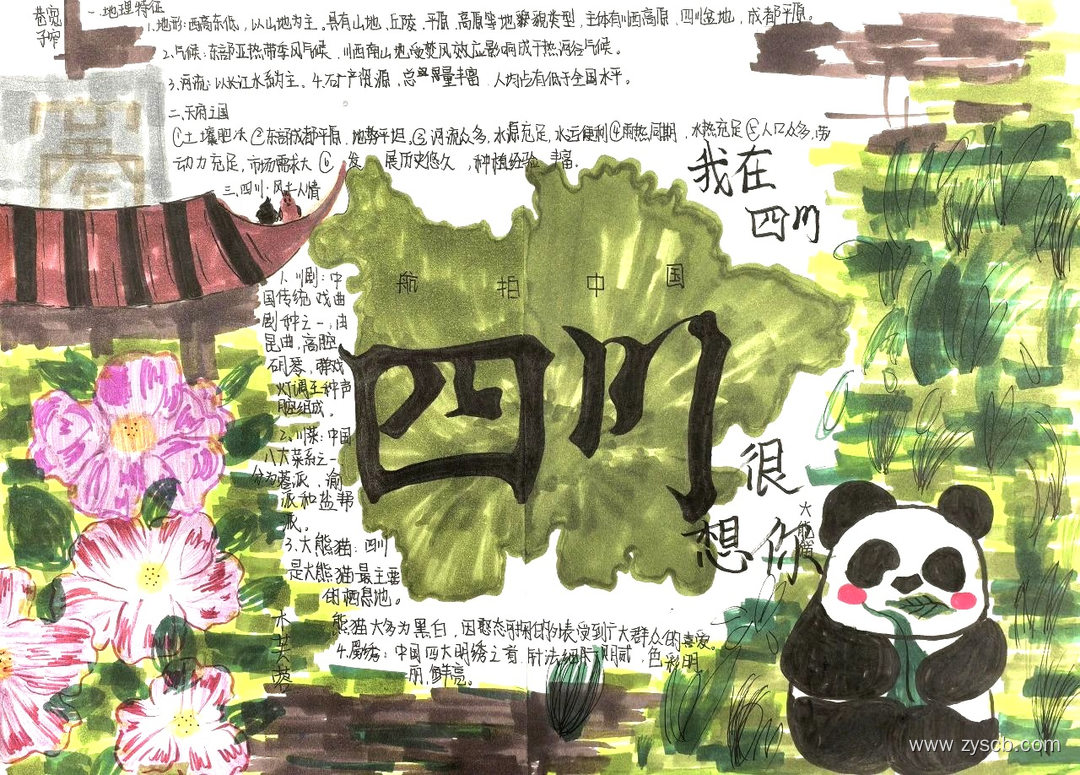 宽窄巷子
一.地理特征
1.地形:西高东低,以山地为主。具有山地、丘陵、平原、高原等地貌类型,主体有川西高原、四川盆地、成都平原。
2.气候:东部亚热带季风气候、川西南山地受焚风效应影响成干热河谷气候。
3.河流:以长江水系为主。4.矿产资源、总量丰富、人均占有低于全国水平。
二.天府之国
①土壤肥沃②东部成都平原,地势平坦③河流众多,水源充足,水运便利④雨热同期,水热充足⑤人口众多,劳
动力充足,市场需求大⑥发展历史悠久,种植经验丰富.
三.四川·风土人情
我在
四川
1.川剧:中
国传统戏曲
剧种之一,由
昆曲,高腔
胡琴,弹戏
灯调五种声
腔组成。
2.川菜:中国
八大菜系之一
分为蓉派,渝
派和盐帮
派。
3.大熊猫:四川
是大熊猫最主要
的栖息地。
熊猫大多为黑白,因憨态可掬的外表受到广大群众的喜爱。
4.蜀绣:中国四大明绣之首,针法细腻,色彩明
丽,鲜亮。
航拍中国
四川
很
想你
大熊猫
木芙蓉
www.zyscb.com